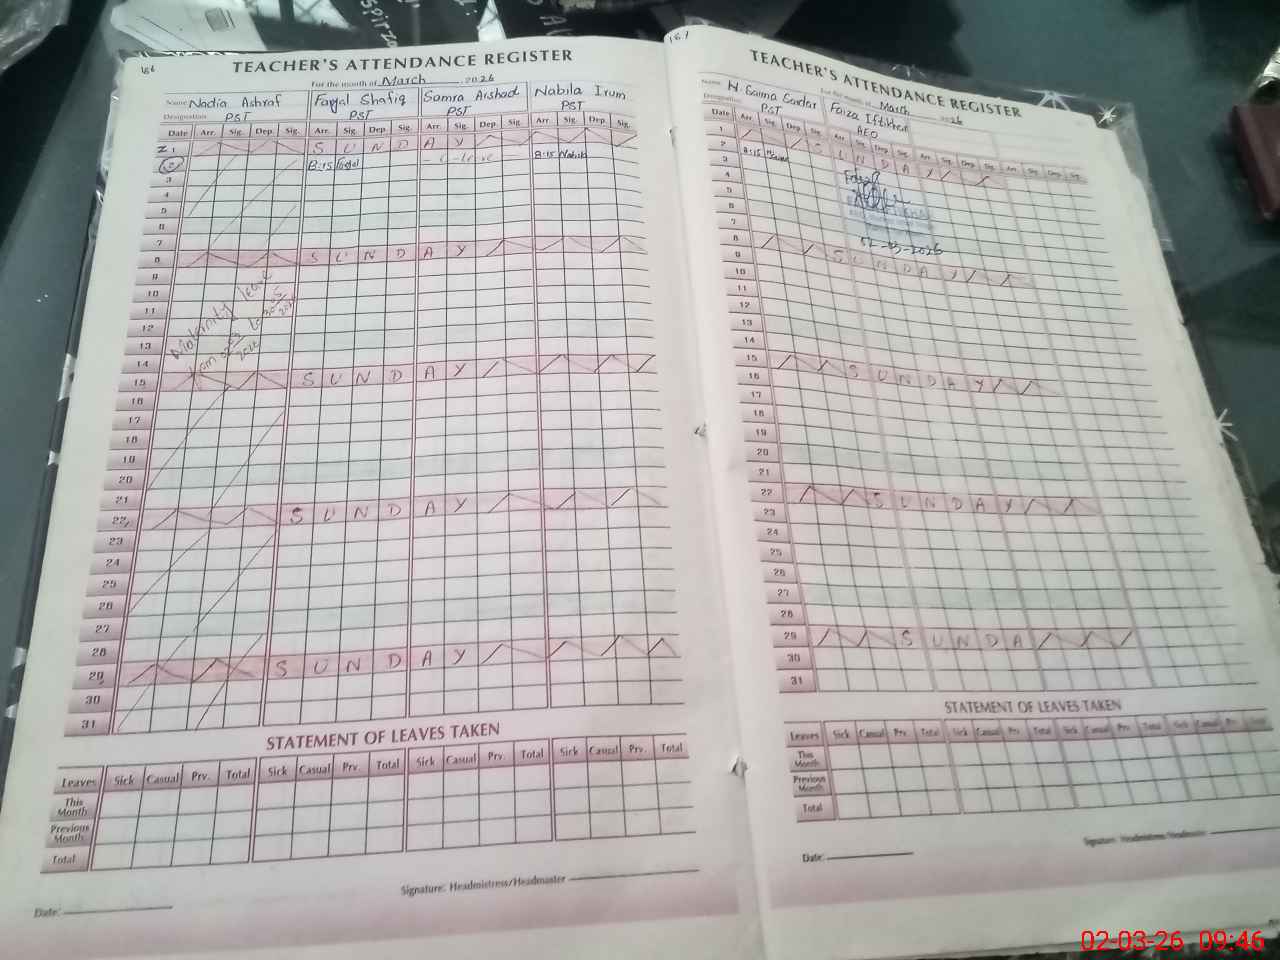 166
TEACHER'S ATTENDANCE REGISTER
For the month of March 2026
Name Nadia Ashraf Faryal Shafiq Samra Arshad Nabila Irum
Designation PST PST PST PST
Date Arr. Sig. Dep. Sig. Arr. Sig. Dep. Sig. Arr. Sig. Dep. Sig. Arr. Sig. Dep. Sig.
1 S U N D A Y
2 8:15 Faryal C-Leave 8:15 Nabila
3
4
5
6
7
8 S U N D A Y
9
10
11
12
13
Maternity leave
from
2026
14
15 S U N D A Y
16
17
18
19
20
21
22 S U N D A Y
23
24
25
26
27
28
29 S U N D A Y
30
31
STATEMENT OF LEAVES TAKEN
Leaves Sick Casual Prv. Total Sick Casual Prv. Total Sick Casual Prv. Total Sick Casual Prv. Total
This Month
Previous Month
Total
Signature: Headmistress/Headmaster
Date:
167
TEACHER'S ATTENDANCE REGISTER
For the month of March 2026
Name H. Saima Sardar Faiza Iftikhar
Designation PST AEO
Date Arr. Sig. Dep. Sig. Arr. Sig. Dep. Sig. Arr. Sig. Dep. Sig. Arr. Sig. Dep. Sig.
1 S U N D A Y
2 8:15
3
4
5
6
7
02-03-2026
8 S U N D A Y
9
10
11
12
13
14
15 S U N D A Y
16
17
18
19
20
21
22 S U N D A Y
23
24
25
26
27
28
29 S U N D A
30
31
STATEMENT OF LEAVES TAKEN
Leaves Sick Casual Prv. Total Sick Casual Prv. Total Sick Casual Prv. Total Sick Casual Prv.
This Month
Previous Month
Total
Signature: Headmistress/Headmaster
Date:
02-03-26 09:46